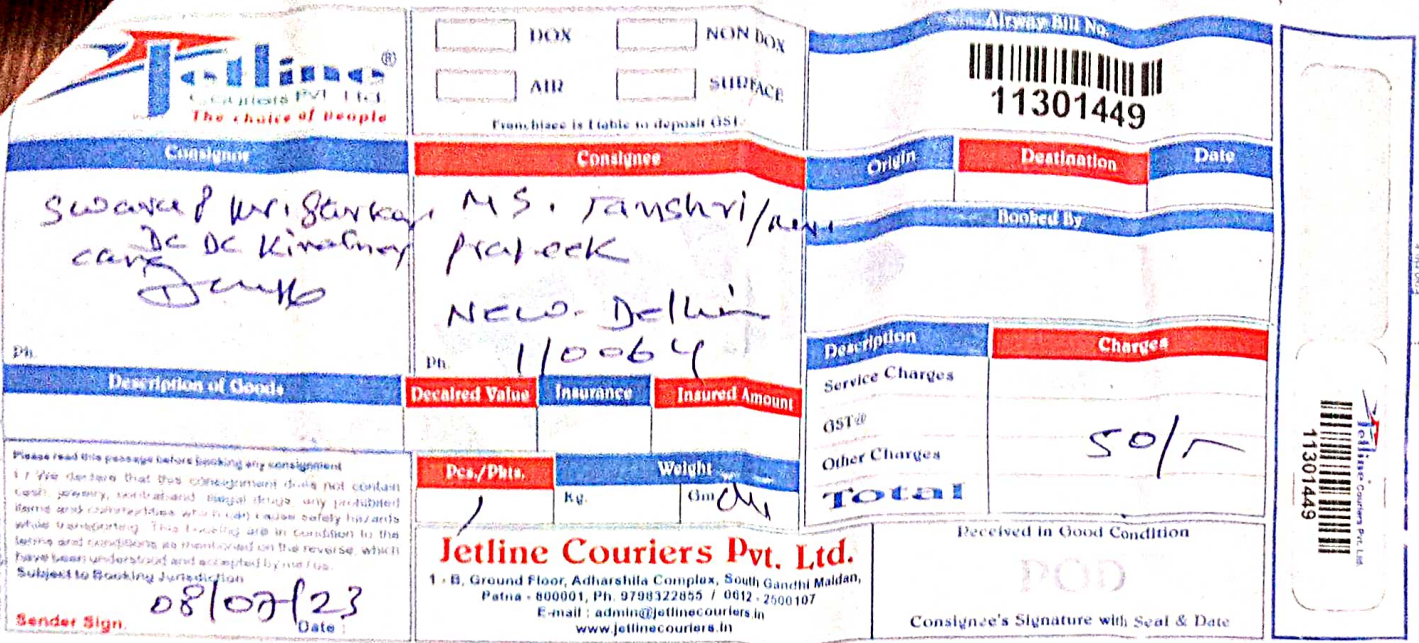 Jetline®
Couriers Pvt. Ltd.
The choice of People
DOX
NON DOX
AIR
SURFACE
Franchisee is liable to deposit GST.
Airway Bill No.
11301449
Consignor
Consignee
Origin
Destination
Date
DC DC
care
MS. Tanshri/
Prateek
New. Delhi
Ph.
Ph. 110064
Booked By
Description
Charges
Service Charges
GST@
Other Charges
50/-
Total
Description of Goods
Decalred Value
Insurance
Insured Amount
Pcs./Pkts.
Weight
1
Kg.
Gm
Please read this passage before booking any consignment
I / We declare that this consignment does not contain
cash, jewelry, contraband, illegal drugs, any prohibited
items and commodities which can cause safety hazards
while transporting. This booking are in condition to the
terms and conditions as mentioned on the reverse, which
have been understood and accepted by me / us.
Subject to Booking Jurisdiction
08/07/23
Sender Sign.
Date :
Jetline Couriers Pvt. Ltd.
1 - B, Ground Floor, Adharshila Complex, South Gandhi Maidan,
Patna - 800001, Ph. 9798322855 / 0612 - 2500107
E-mail : admin@jetlinecouriers.in
www.jetlinecouriers.in
Received in Good Condition
POD
Consignee's Signature with Seal & Date
Jetline Couriers Pvt. Ltd.
11301449